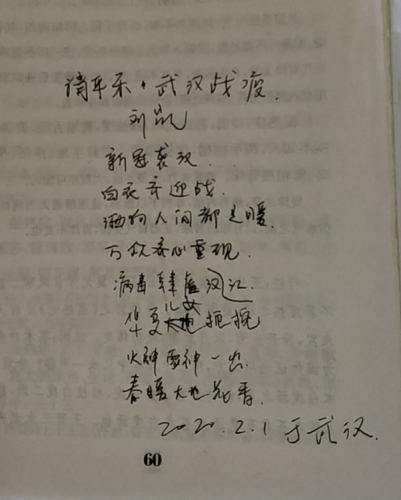 清平乐·武汉战疫.
刘凯
新冠袭汉.
白衣齐迎战.
洒向人间都是暖.
万众齐心重现.
病毒肆虐汉江
华夏儿女抱挽
火神雷神一出.
春暖大地花香.
2020.2.1于武汉.
60